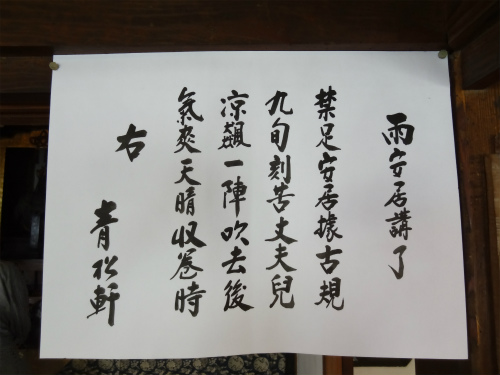 雨安居講了
禁足安居據古規
九旬刻苦丈夫兒
涼飆一陣吹去後
氣爽天晴収巻時
右
青松軒